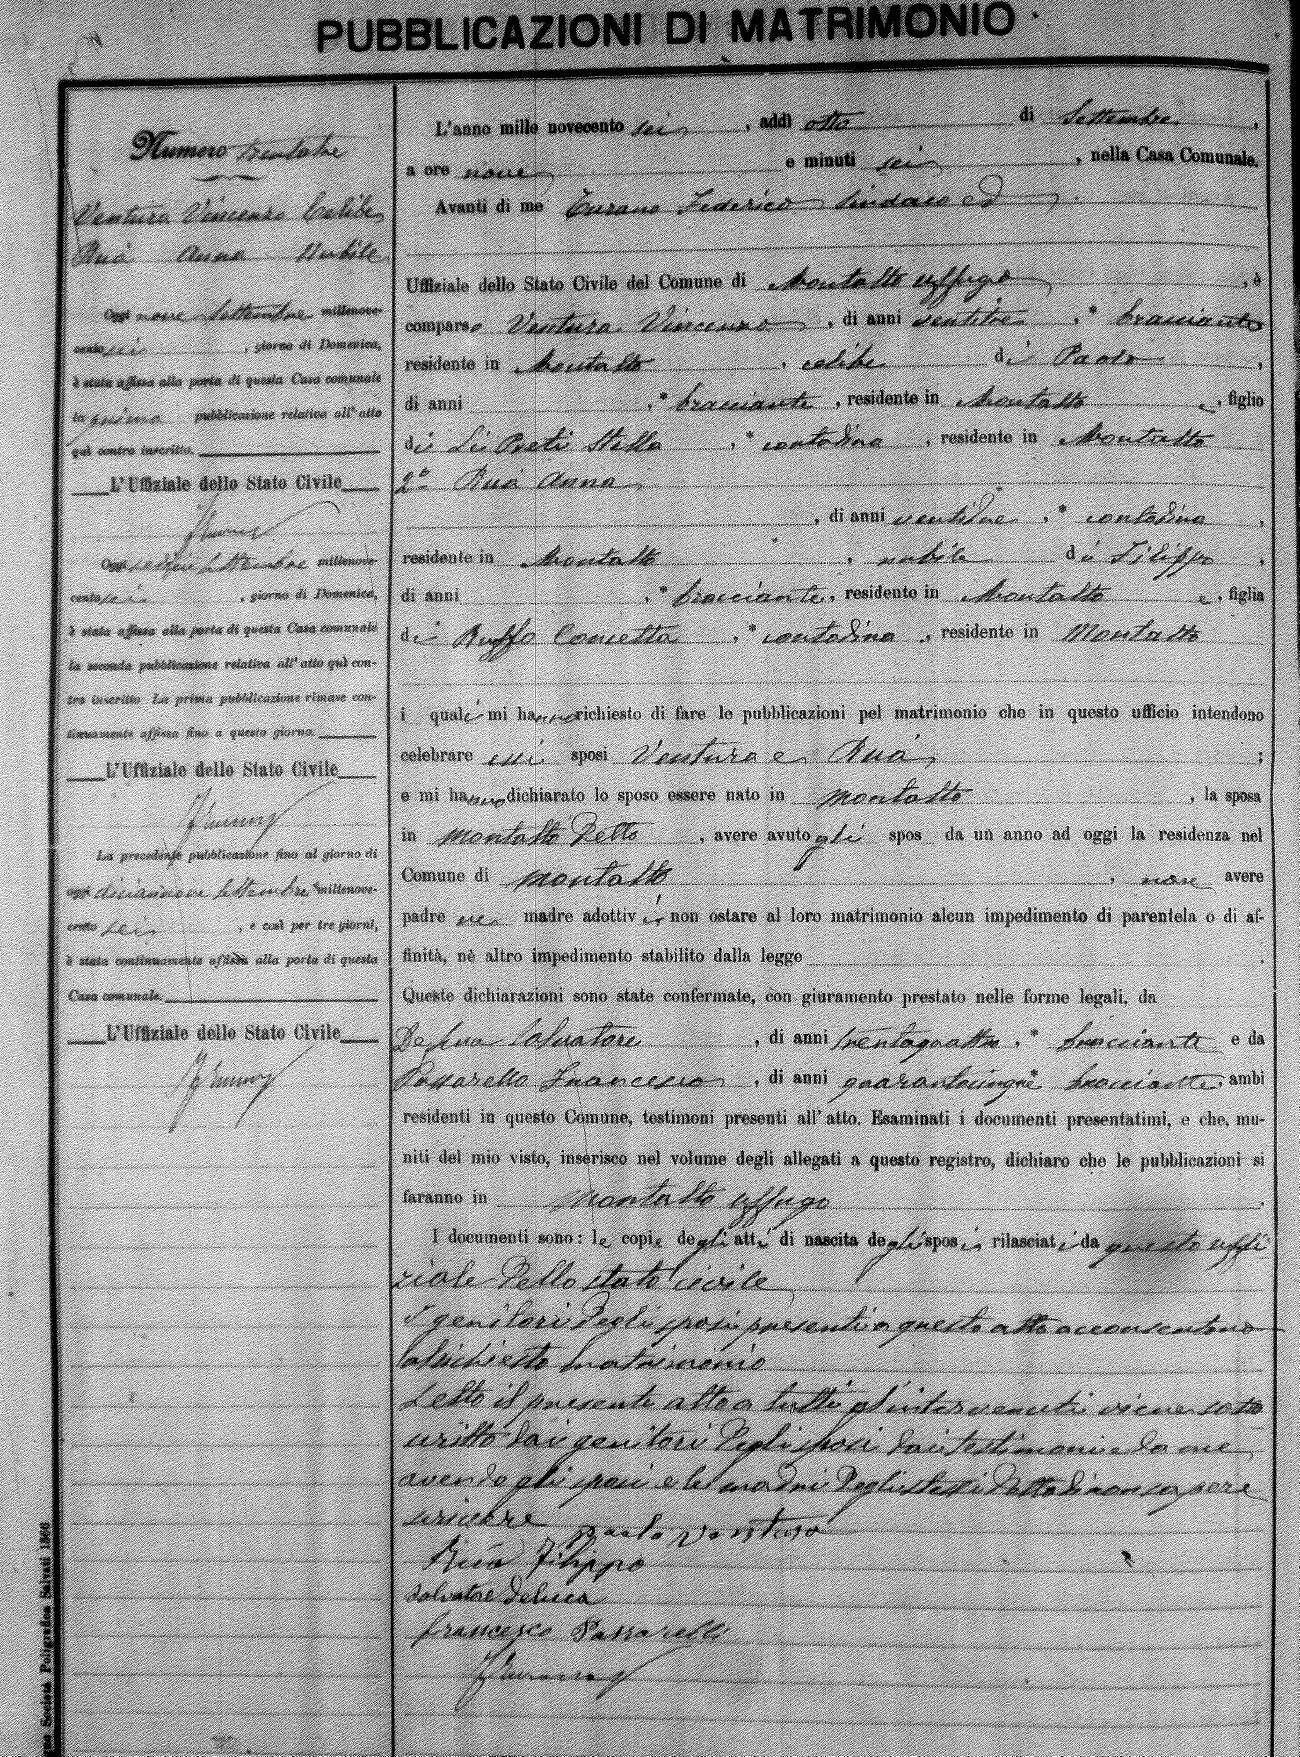 PUBBLICAZIONI DI MATRIMONIO
Numero trentatre
Ventura Vincenzo Celibe
Ruà Anna Nubile
Oggi nove Settembre millenove-
cento sei , giorno di Domenica,
è stata affissa alla porta di questa Casa comunale
la prima pubblicazione relativa all'atto
quì contro inscritto.
L'Uffiziale dello Stato Civile
Oggi sedici Settembre millenove-
cento sei , giorno di Domenica,
è stata affissa alla porta di questa Casa comunale
la seconda pubblicazione relativa all'atto quì con-
tro inscritto La prima pubblicazione rimase con-
tinuamente affissa fino a questo giorno.
L'Uffiziale dello Stato Civile
La precedente pubblicazione fino al giorno di
oggi diciannove Settembre millenove-
cento sei , e così per tre giorni,
è stata continuamente affissa alla porta di questa
Casa comunale.
L'Uffiziale dello Stato Civile
L'anno mille novecento sei , addì otto di Settembre ,
a ore nove e minuti sei , nella Casa Comunale.
Avanti di me Turano Federico Sindaco ed
Uffiziale dello Stato Civile del Comune di Montalto Uffugo , è
comparso Ventura Vincenzo , di anni ventitre , * bracciante
residente in Montalto , celibe di Paolo ,
di anni , * bracciante , residente in Montalto e , figlio
di Li Preti Stella , * contadina , residente in Montalto
2° Ruà Anna
, di anni ventidue , * contadina ,
residente in Montalto , nubile di Filippo ,
di anni , * bracciante , residente in Montalto e , figlia
di Ruffo Concetta , * contadina , residente in Montalto
i quali mi hanno richiesto di fare le pubblicazioni pel matrimonio che in questo ufficio intendono
celebrare essi sposi Ventura e Ruà ;
e mi hanno dichiarato lo sposo essere nato in Montalto , la sposa
in Montalto detto , avere avuto gli spos da un anno ad oggi la residenza nel
Comune di Montalto , non avere
padre nè madre adottivi non ostare al loro matrimonio alcun impedimento di parentela o di af-
finità, nè altro impedimento stabilito dalla legge .
Queste dichiarazioni sono state confermate, con giuramento prestato nelle forme legali, da
De Luca Salvatore , di anni trentaquattro , * bracciante e da
Passarello Francesco , di anni quarantacinque * bracciante , ambi
residenti in questo Comune, testimoni presenti all'atto. Esaminati i documenti presentatimi, e che, mu-
niti del mio visto, inserisco nel volume degli allegati a questo registro, dichiaro che le pubblicazioni si
faranno in Montalto Uffugo .
I documenti sono: le copie degli atti di nascita degli sposi rilasciati da questo uffi
ziale dello stato civile
I genitori degli sposi presenti a questo atto acconsentono
al richiesto matrimonio
Letto il presente atto a tutti gl'intervenuti viene sotto
scritto dai genitori degli sposi dai testimoni e da me
avendo gli sposi e le madri degli stessi detto di non sapere
scrivere
paolo ventura
Ruà Filippo
Salvatore Deluca
Francesco Passarelli
gno Società Poligrafica Salvati 1906